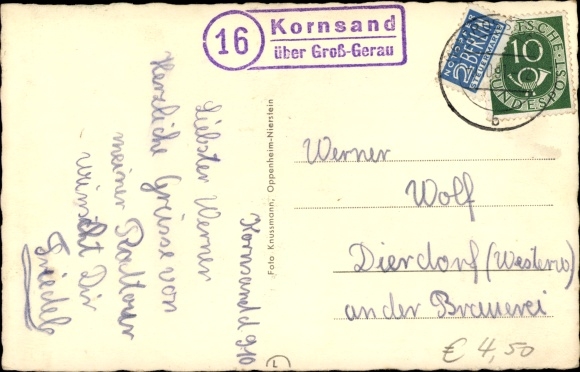 16 Kornsand
über Groß-Gerau
NOTOPFER
2 BERLIN
STEUERMARKE
DEUTSCHE
10
BUNDESPOST
b
Kornsand d. 9/10
Liebster Werner
Herzliche Grüsse von
meiner Radtour
wünscht Dir
Friedel
Foto Knussmann, Oppenheim-Nierstein
Werner
Wolf
Dierdorf (Westerw)
an der Brauerei
€ 4,50